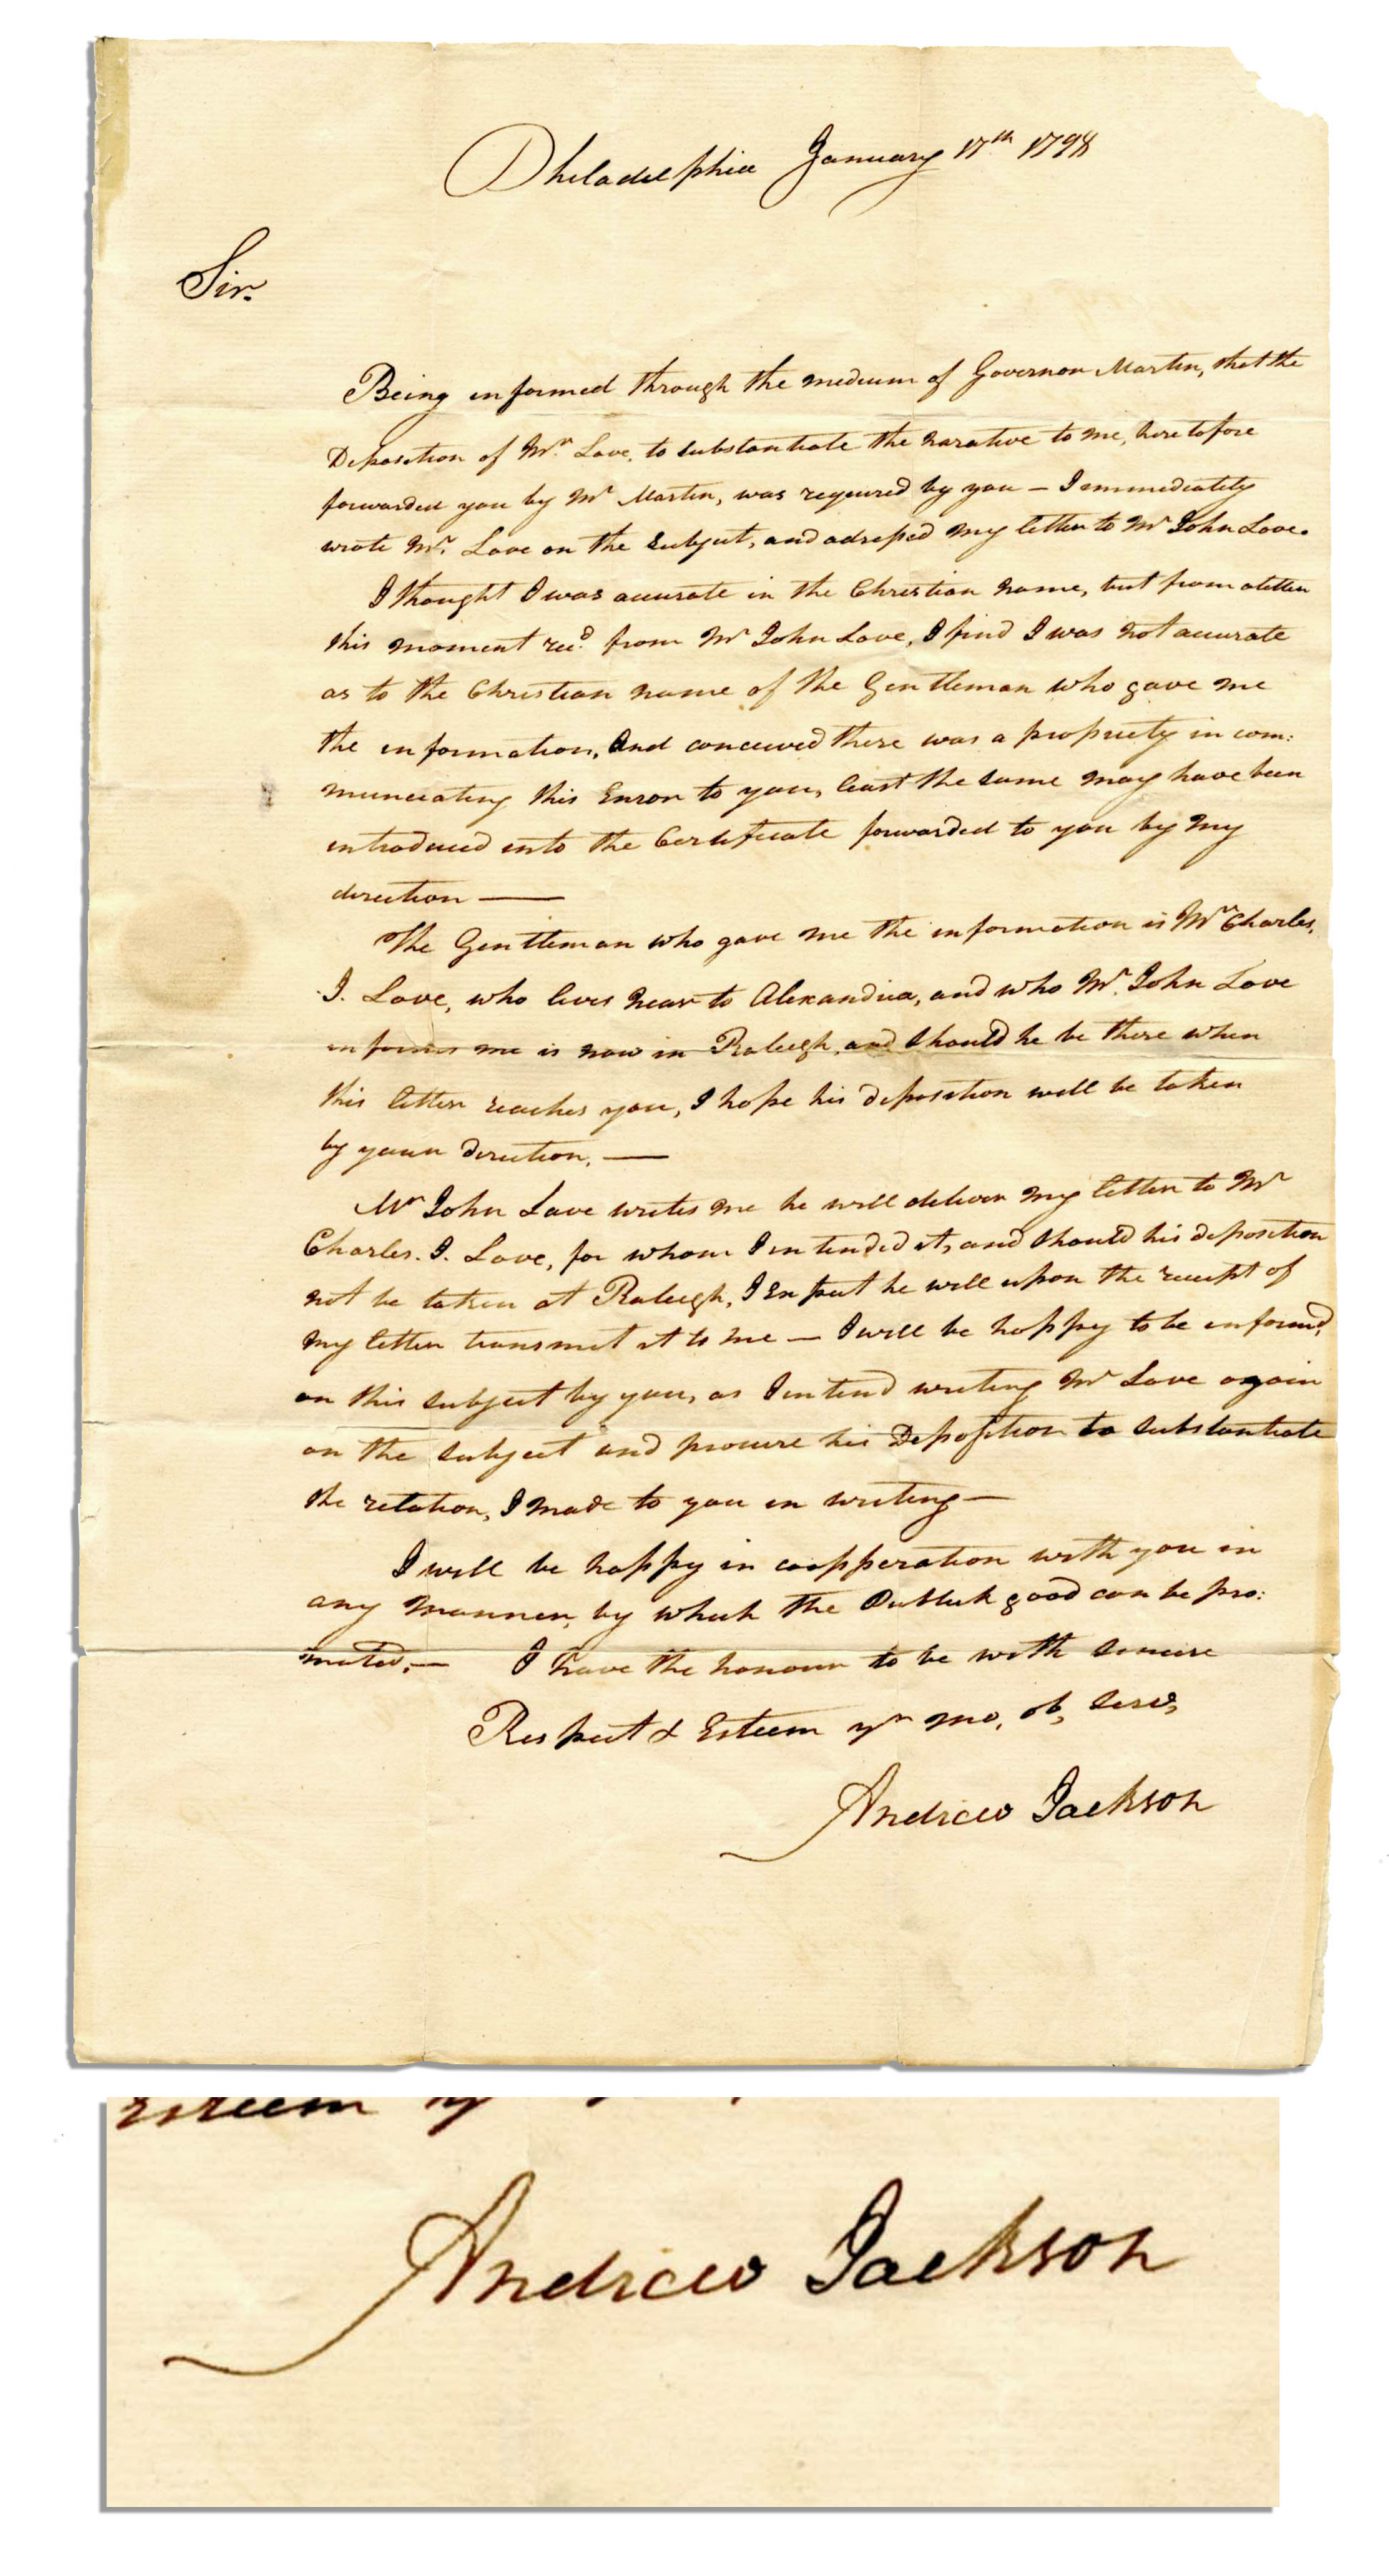 Philadelphia January 17th 1798
Sir.
Being informed through the medium of Governor Martin, that the
Deposition of Mr. Love, to substantiate the narative to me, heretofore
forwarded you by Mr Martin, was required by you — I immediately
wrote Mr. Love on the Subject, and adressed my letter to Mr John Love.
I thought I was accurate in the Christian name, but from a letter
this moment recd. from Mr John Love, I find I was not accurate
as to the Christian name of the Gentleman who gave me
the information, and conceived there was a propriety in com:
municating this Error to you, least the same may have been
introduced into the Certificate forwarded to you by my
direction —
The Gentleman who gave me the information is Mr Charles.
J. Love, who lives near to Alexandria, and who Mr. John Love
informs me is now in Raleigh, and should he be there when
this letter reaches you, I hope his deposition will be taken
by your direction. —
Mr John Love writes me he will deliver my letter to Mr
Charles. J. Love, for whom I intended it, and should his deposition
not be taken at Raleigh, I Expect he will upon the receipt of
my letter transmit it to me — I will be happy to be informd,
on this subject by you, as I intend writing Mr Love again
on the subject and procure his Deposition to substantiate
the relation, I made to you in writing —
I will be happy in coopperation with you in
any manner, by which the Publick good can be pro:
moted. — I have the honour to be with sincere
Respect & Esteem yr mo, ob, servt,
Andrew Jackson
Esteem yr
Andrew Jackson